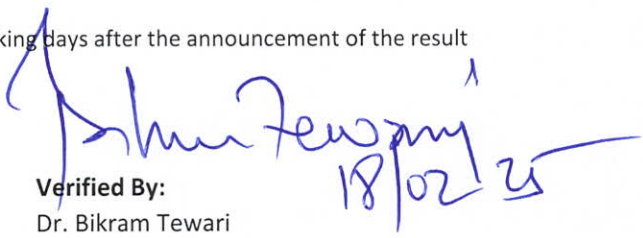 king days after the announcement of the result
Bikram Tewari
18/02/25
Verified By:
Dr. Bikram Tewari